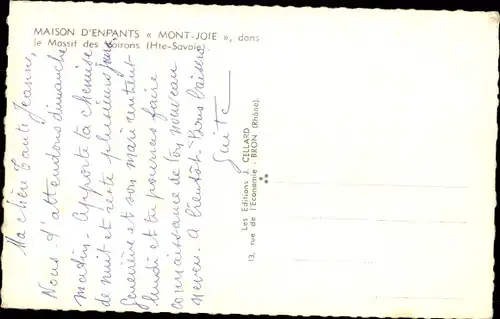 MAISON D'ENFANTS « MONT-JOIE », dans
le Massif des Voirons (Hte-Savoie).
Ma chère Tante Jeanne,
Nous t'attendons dimanche
matin. Apporte ta chemise
de nuit et reste plusieurs jours,
Geneviève et son mari rentrent
lundi et tu pourrais faire
connaissance de ton nouveau
neveu. A bientôt. Bons baisers
Guite
Les Editions J. CELLARD
13, rue de l'Economie - BRON (Rhône).